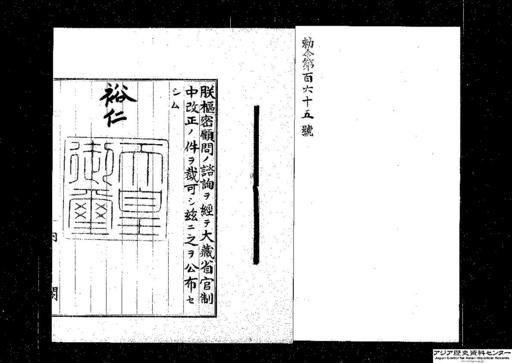 勅令第百六十五號
朕樞密顧問ノ諮詢ヲ經テ大藏省官制
中改正ノ件ヲ裁可シ玆ニ之ヲ公布セ
シム
裕仁
天皇
御璽
内
閣
アジア歴史資料センター
Japan Center for Asian Historical Records